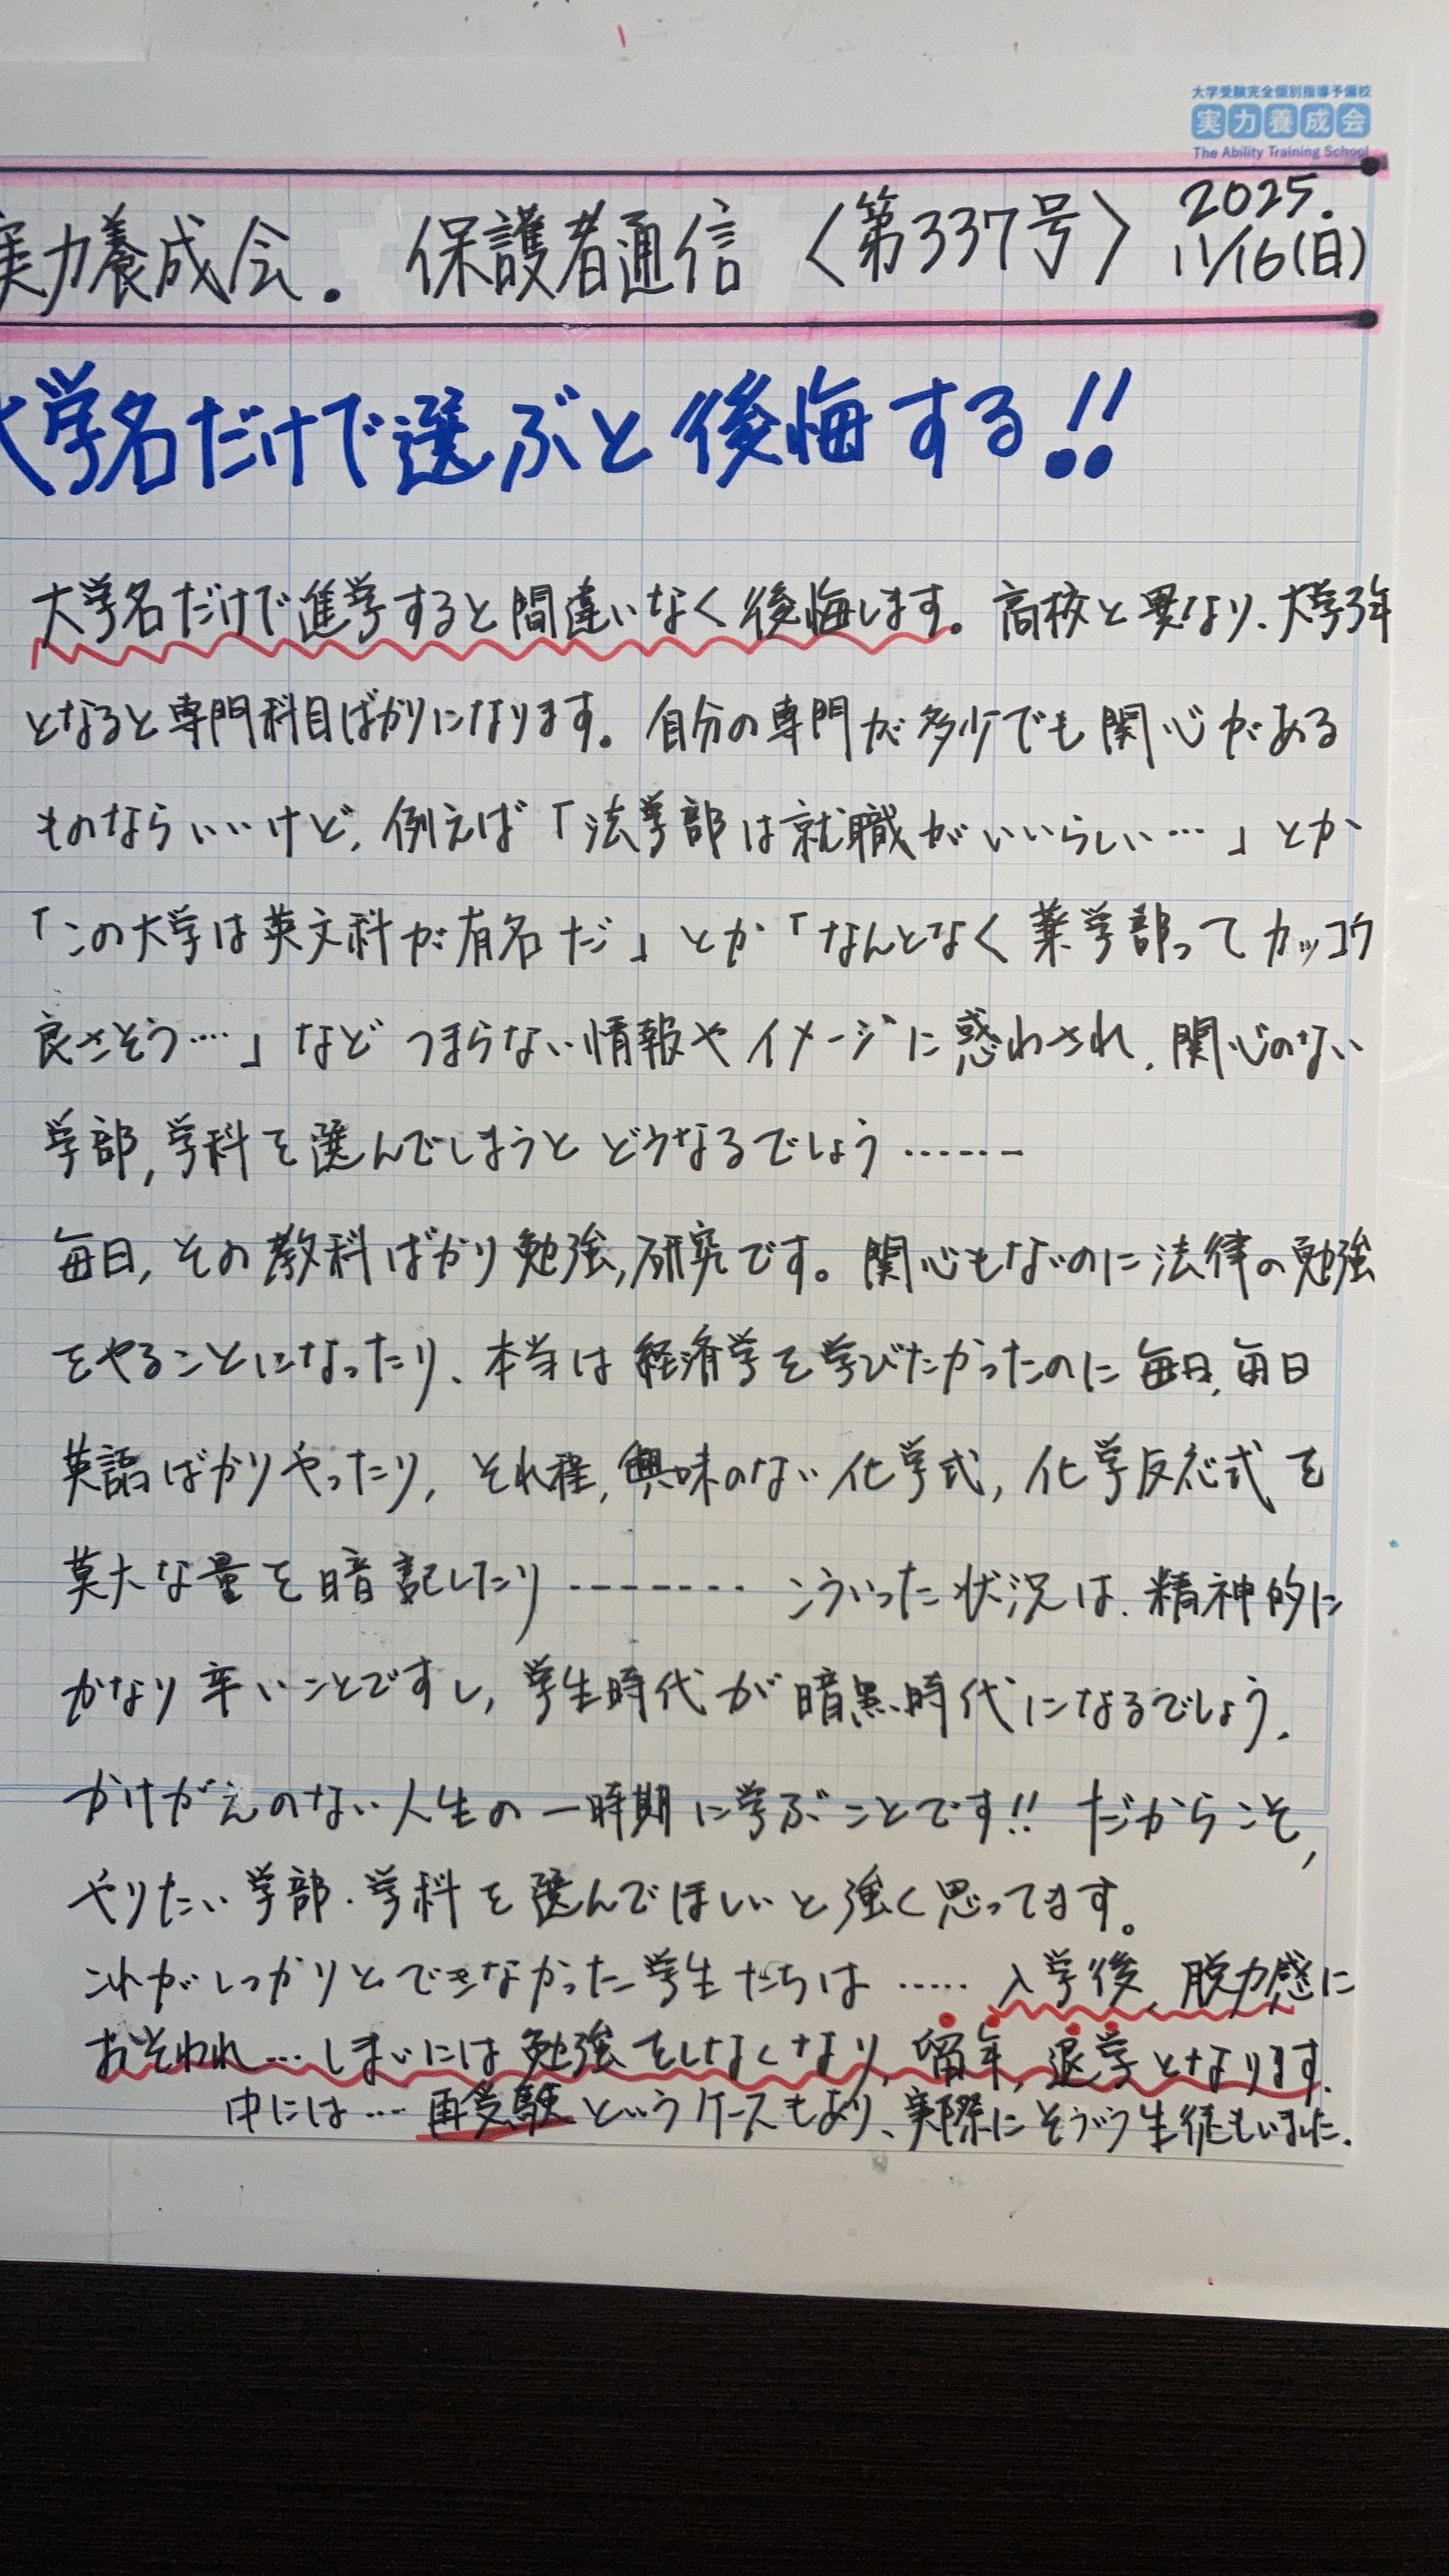 大学受験完全個別指導予備校
実力養成会
The Ability Training School
実力養成会. 保護者通信 〈第337号〉 2025. 11/16(日)
大学名だけで選ぶと後悔する!!
大学名だけで進学すると間違いなく後悔します。高校と異なり、大学3年
となると専門科目ばかりになります。自分の専門が多少でも関心がある
ものならいいけど, 例えば「法学部は就職がいいらしい…」とか
「この大学は英文科が有名だ」とか「なんとなく薬学部ってカッコウ
良さそう…」などつまらない情報やイメージに惑わされ、関心のない
学部, 学科を選んでしまうとどうなるでしょう……
毎日, その教科ばかり勉強, 研究です。関心もないのに法律の勉強
をやることになったり、本当は経済学を学びたかったのに毎日, 毎日
英語ばかりやったり, それ程, 興味のない化学式, 化学反応式を
莫大な量を暗記したり-------- こういった状況は、精神的に
かなり辛いことですし, 学生時代が暗黒時代になるでしょう.
かけがえのない人生の一時期に学ぶことです!! だからこそ,
やりたい学部・学科を選んでほしいと強く思ってます。
これがしっかりとできなかった学生たちは…… 入学後、脱力感に
おそわれ… しまいには勉強をしなくなり, 留年, 退学となります.
中には… 再受験というケースもあり、実際にそういう生徒もいました.